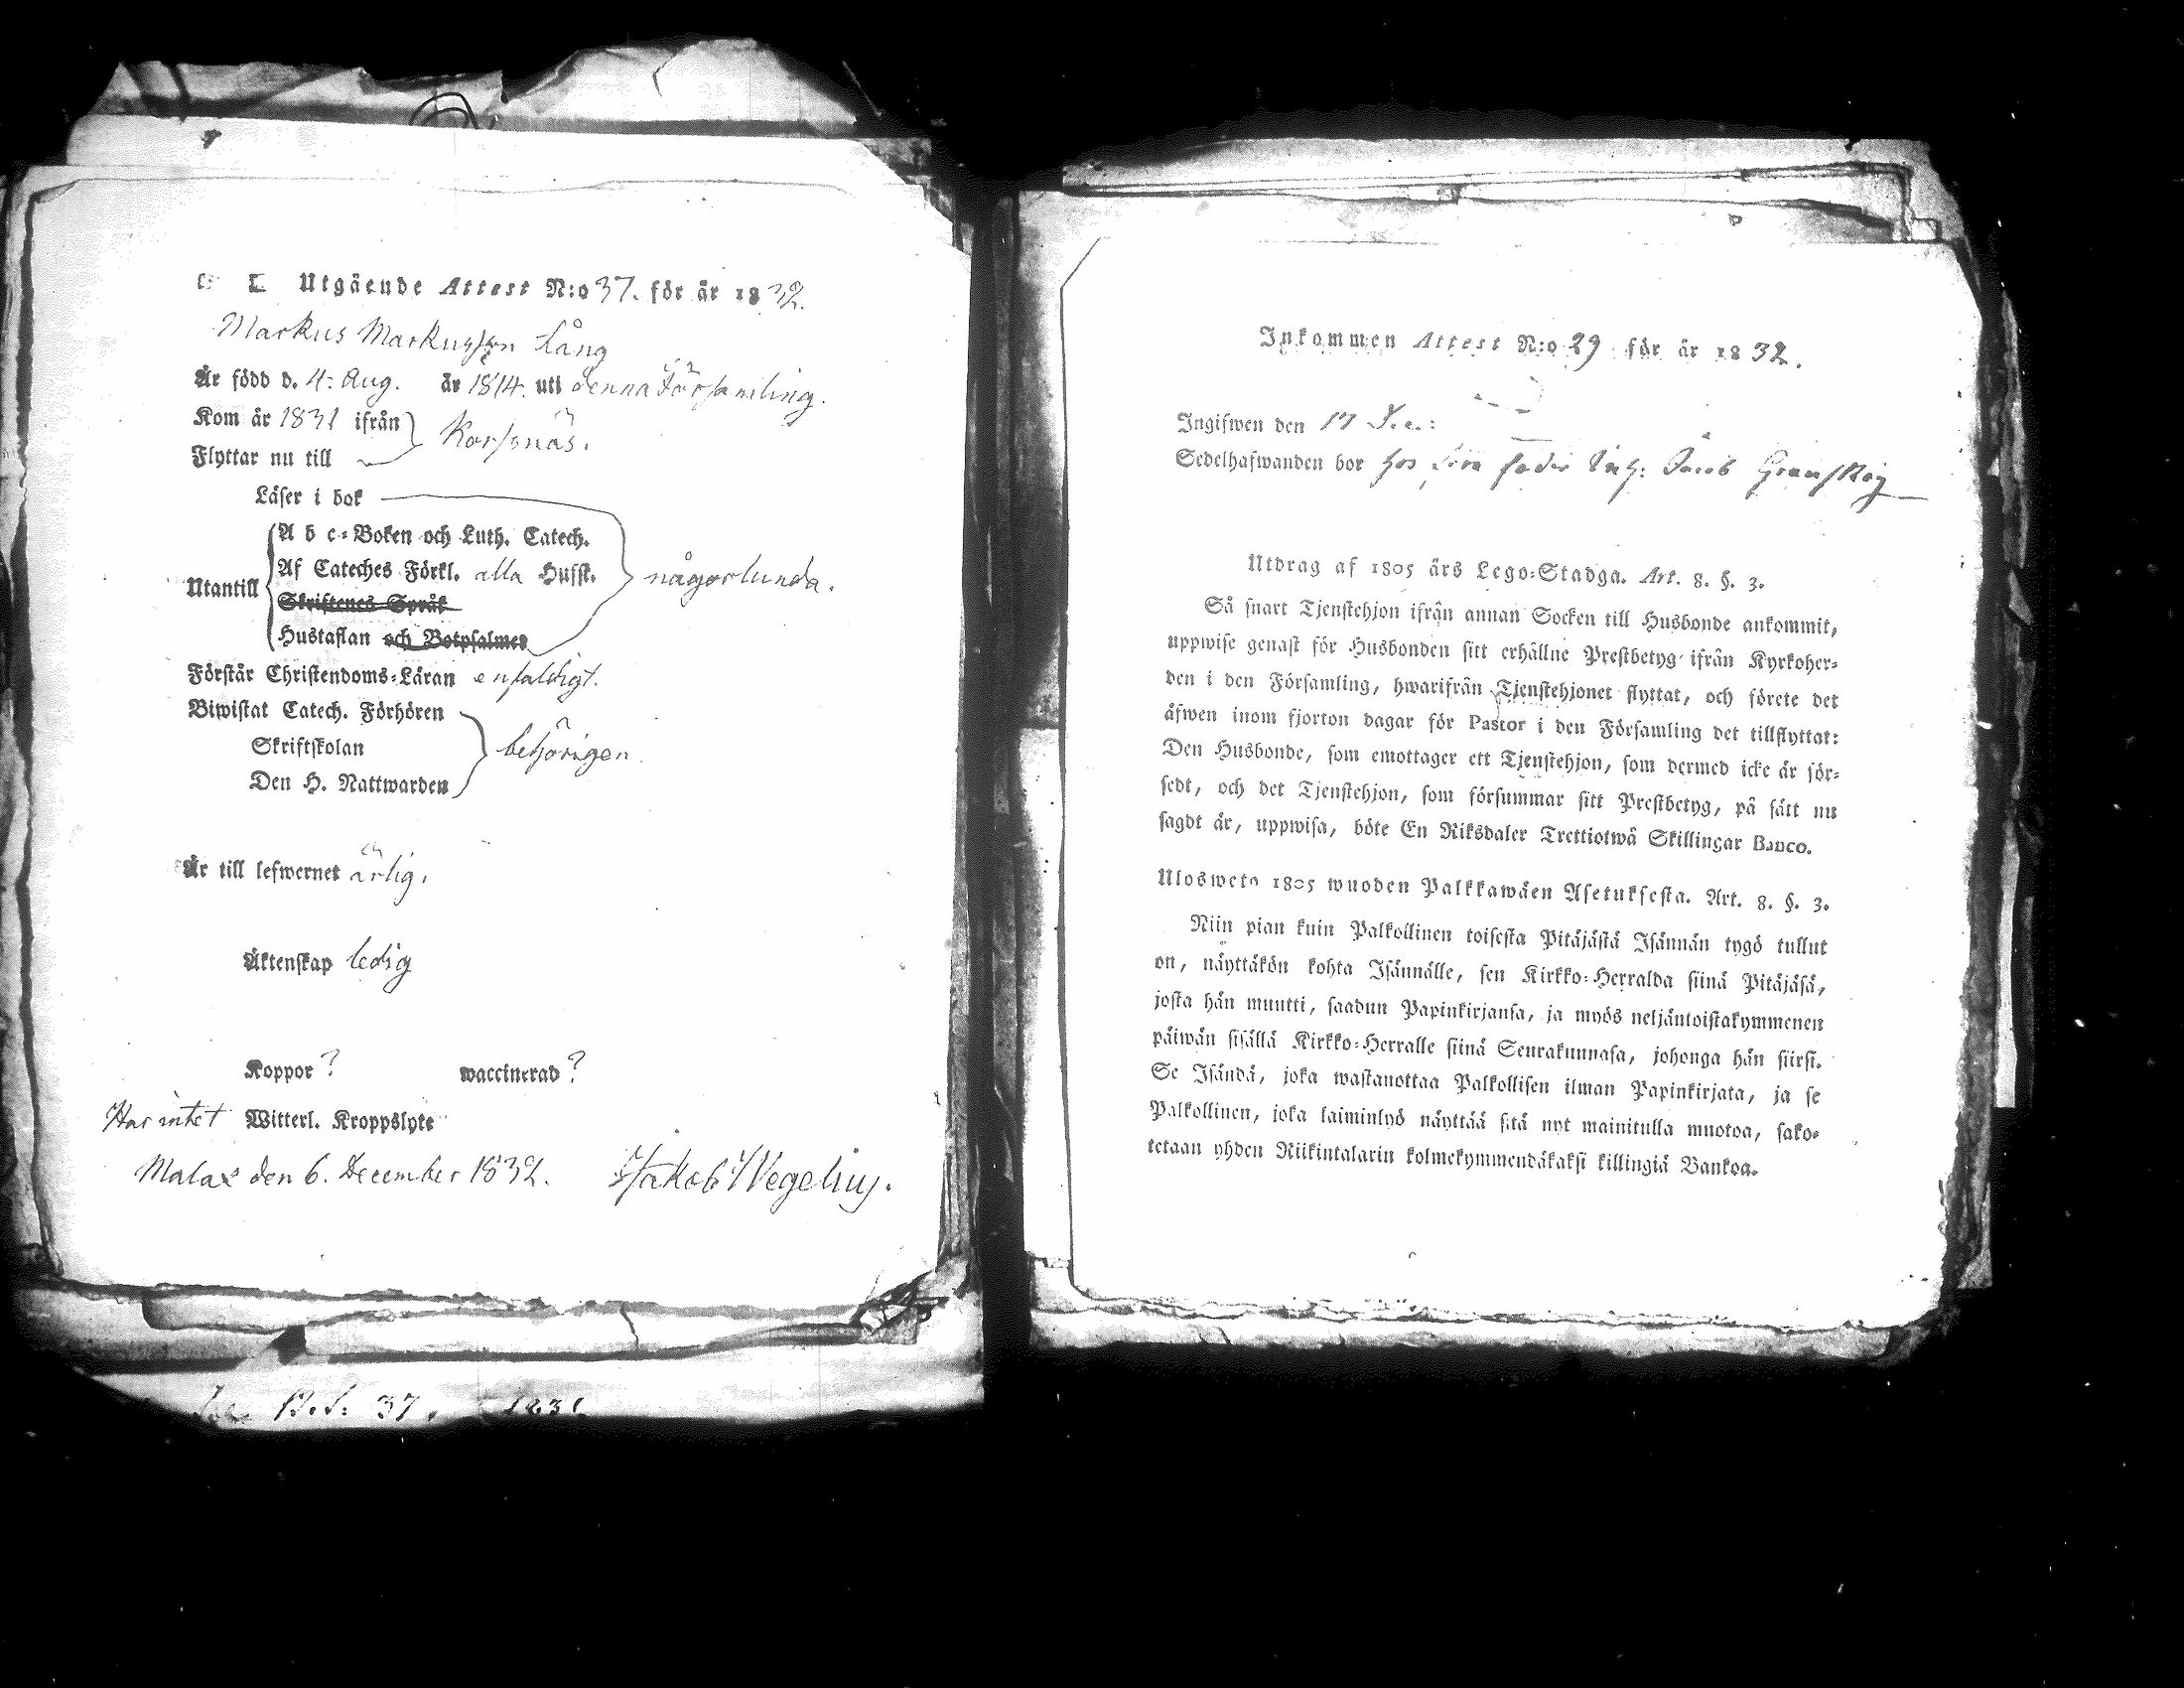 Utgående Attest N:o 37. för år 1832.
Markus Markusson Lång
Är född d. 4: Aug. år 1814. uti denna Församling.
Kom år 1831 ifrån
Flyttar nu till
Korssnäs.
Läser i bok
A b c-Boken och Luth. Catech.
Utantill Af Cateches Förkl. alla Hufst. någorlunda.
Skriftenes Språk
Hustaflan och Botpsalmer
Förstår Christendoms-Läran enfaldigt.
Biwistat Catech. Förhören
Skriftskolan behörigen.
Den H. Nattwarden
Är till lefwernet ärlig.
Äktenskap ledig
Koppor? waccinerad?
Har intet Witterl. Kroppslyte
Malax den 6. December 1832. Jakob Wegelius.
37. 1831
Inkommen Attest N:o 29 för år 1832.
Ingifwen den 17
Sedelhafwanden bor hos fader Jacob
Utdrag af 1805 års Lego-Stadga. Art. 8. §. 3.
Så snart Tjenstehjon ifrån annan Socken till Husbonde ankommit,
uppwise genast för Husbonden sitt erhållne Prestbetyg ifrån Kyrkoher-
den i den Församling, hwarifrån Tjenstehjonet flyttat, och förete det
äfwen inom fjorton dagar för Pastor i den Församling det tillflyttat:
Den Husbonde, som emottager ett Tjenstehjon, som dermed icke är för-
sedt, och det Tjenstehjon, som försummar sitt Prestbetyg, på sätt nu
sagdt är, uppwisa, böte En Riksdaler Trettiotwå Skillingar Banco.
Ulosweto 1805 wuoden Palkkawäen Asetuksesta. Art. 8. §. 3.
Niin pian kuin Palkollinen toisesta Pitäjästä Isännän tygö tullut
on, näyttäkön kohta Isännälle, sen Kirkko-Herralda siinä Pitäjäsä,
josta hän muutti, saadun Papinkirjansa, ja myös neljäntoistakymmenen
päiwän sisällä Kirkko-Herralle siinä Seurakunnasa, johonga hän siirsi.
Se Isändä, joka wastanottaa Palkollisen ilman Papinkirjata, ja se
Palkollinen, joka laiminlyö näyttää sitä nyt mainitulla muotoa, sako-
tetaan yhden Riikintalarin kolmekymmendäkaksi killingiä Bankoa.